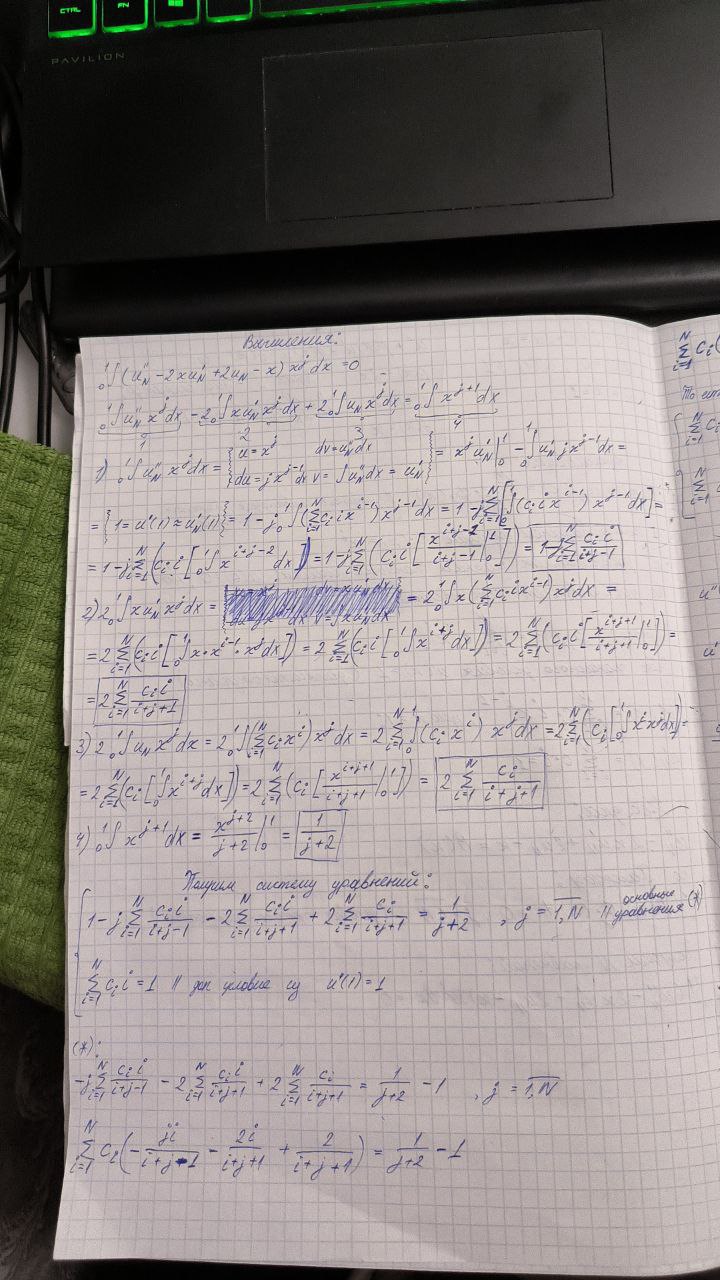 CTRL
FN
PAVILION
Вычисления:
₀¹∫(u''_N - 2xu'_N + 2u_N - x) x^j dx = 0
₀¹∫u''_N x^j dx - 2₀¹∫xu'_N x^j dx + 2₀¹∫u_N x^j dx = ₀¹∫x^{j+1} dx
1 2 3 4
1) ₀¹∫u''_N x^j dx = { u = x^j dv = u''_N dx du = jx^{j-1}dx v = ∫u''_N dx = u'_N } = x^j u'_N |₀¹ - ₀¹∫u'_N jx^{j-1}dx =
= {1 = u'(1) ≈ u'_N(1)} = 1 - j ₀¹∫(Σ_{i=1}^N c_i i x^{i-1}) x^{j-1}dx = 1 - jΣ_{i=1}^N [₀¹∫(c_i i x^{i-1}) x^{j-1}dx] =
= 1 - jΣ_{i=1}^N (c_i i [₀¹∫x^{i+j-2} dx]) = 1 - jΣ_{i=1}^N (c_i i [x^{i+j-1}/(i+j-1) |₀¹]) = 1 - jΣ_{i=1}^N c_i i/(i+j-1)
2) 2₀¹∫xu'_N x^j dx = = 2₀¹∫x(Σ_{i=1}^N c_i i x^{i-1}) x^j dx =
= 2Σ_{i=1}^N (c_i i [₀¹∫x·x^{i-1}·x^j dx]) = 2Σ_{i=1}^N (c_i i [₀¹∫x^{i+j} dx]) = 2Σ_{i=1}^N (c_i i [x^{i+j+1}/(i+j+1) |₀¹]) =
= 2Σ_{i=1}^N c_i i/(i+j+1)
3) 2₀¹∫u_N x^j dx = 2₀¹∫(Σ_{i=1}^N c_i x^i) x^j dx = 2Σ_{i=1}^N ₀¹∫(c_i x^i) x^j dx = 2Σ_{i=1}^N (c_i [₀¹∫x^i x^j dx]) =
= 2Σ_{i=1}^N (c_i [₀¹∫x^{i+j} dx]) = 2Σ_{i=1}^N (c_i [x^{i+j+1}/(i+j+1) |₀¹]) = 2Σ_{i=1}^N c_i/(i+j+1)
4) ₀¹∫x^{j+1}dx = x^{j+2}/(j+2) |₀¹ = 1/(j+2)
Получим систему уравнений:
1 - jΣ_{i=1}^N c_i i/(i+j-1) - 2Σ_{i=1}^N c_i i/(i+j+1) + 2Σ_{i=1}^N c_i/(i+j+1) = 1/(j+2) , j = 1,N // основные уравнения (*)
Σ_{i=1}^N c_i i = 1 // доп условие из u'(1) = 1
(*):
-jΣ_{i=1}^N c_i i/(i+j-1) - 2Σ_{i=1}^N c_i i/(i+j+1) + 2Σ_{i=1}^N c_i/(i+j+1) = 1/(j+2) - 1 , j = 1,N
Σ_{i=1}^N c_i(-ji/(i+j-1) - 2i/(i+j+1) + 2/(i+j+1)) = 1/(j+2) - 1